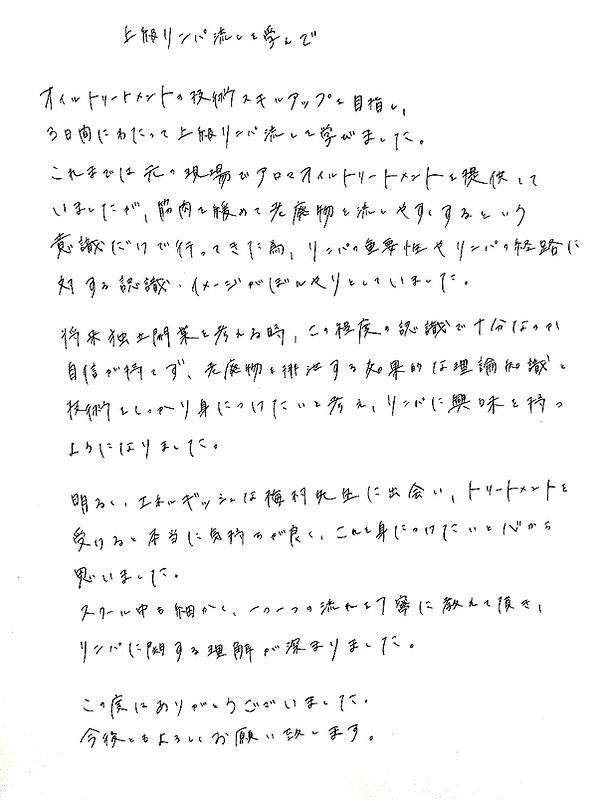 上級リンパ流しを学んで
オイルトリートメントの技術スキルアップを目指し、
3日間にわたって上級リンパ流しを学びました。
これまでは元の現場でアロマオイルトリートメントを提供して
いましたが、筋肉を緩めて老廃物を流しやすくするという
意識だけで行ってきた為、リンパの重要性やリンパの経路に
対する認識・イメージがぼんやりとしていました。
将来独立開業を考える時、この程度の認識で十分なのか
自信が持てず、老廃物を排泄する効果的な理論知識と
技術をしっかり身につけたいと考え、リンパに興味を持つ
ようになりました。
明るく、エネルギッシュな梅村先生に出会い、トリートメントを
受けると本当に気持ちが良く、これを身につけたいと心から
思いました。
スクール中も細かく、一つ一つの流れを丁寧に教えて頂き、
リンパに関する理解が深まりました。
この度はありがとうございました。
今後ともよろしくお願い致します。